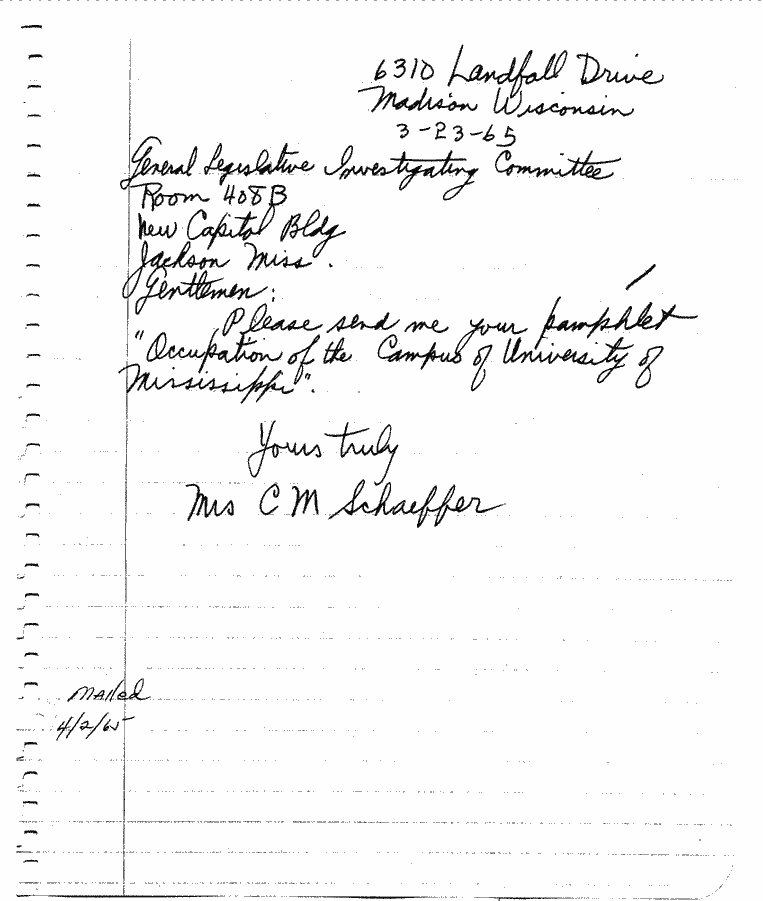 6310 Landfall Drive
Madison Wisconsin
3-23-65
General Legislative Investigating Committee
Room 408B
New Capitol Bldg
Jackson Miss.
Gentlemen:
Please send me your pamphlet
"Occupation of the Campus of University of
Mississippi".
Yours truly
Mrs C M Schaeffer
Mailed
4/2/65